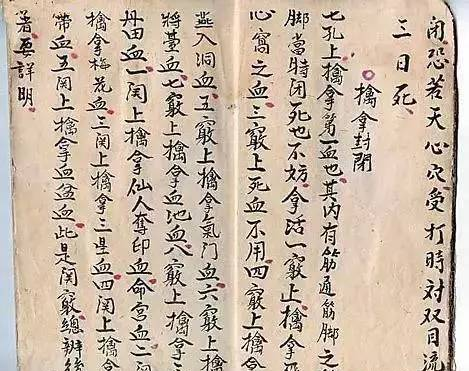 闭恐若天心穴受打時对双目流
三日死
擒拿封閉
七孔上擒拿第一血也其内有筋通筋脚之
脚當時闭死也不妨拿活一竅上擒拿
心窩之血三竅上死血不用四竅上擒拿
燕入洞血五竅上擒拿氣门血六竅上擒
將薹血七竅上擒拿血池血八竅上擒拿
丹田血一関上擒拿仙人奪印血命宫血二関
擒拿梅花血三関上擒拿三星血四関上擒拿
帶血五関上擒拿血盆血此是関竅總辨
著要詳明